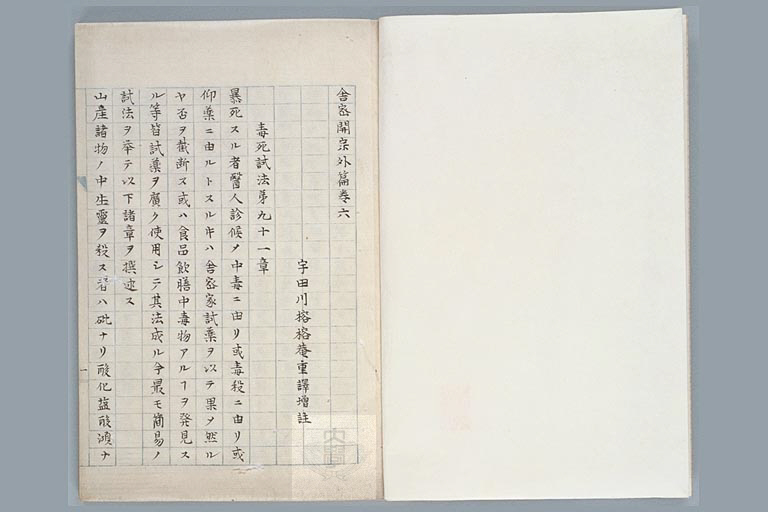 舎密開宗外篇巻六
宇田川榕榕菴重譯増註
毒死試法第九十一章
暴死スル者醫人診候乄中毒ニ由リ或毒殺ニ由リ或
仰藥ニ由ルトスル片ハ舎密家試藥ヲ以テ果乄然ル
ヤ否ヲ截断ス或ハ食品飲膳中毒物アルヿヲ発見ス
ル等皆試藥ヲ廣ク使用シテ其法成ル今最モ簡易ノ
試法ヲ举テ以下諸章ヲ撰述ス
山産諸物ノ中生靈ヲ殺ス者ハ砒ナリ酸化塩酸澒ナ
一